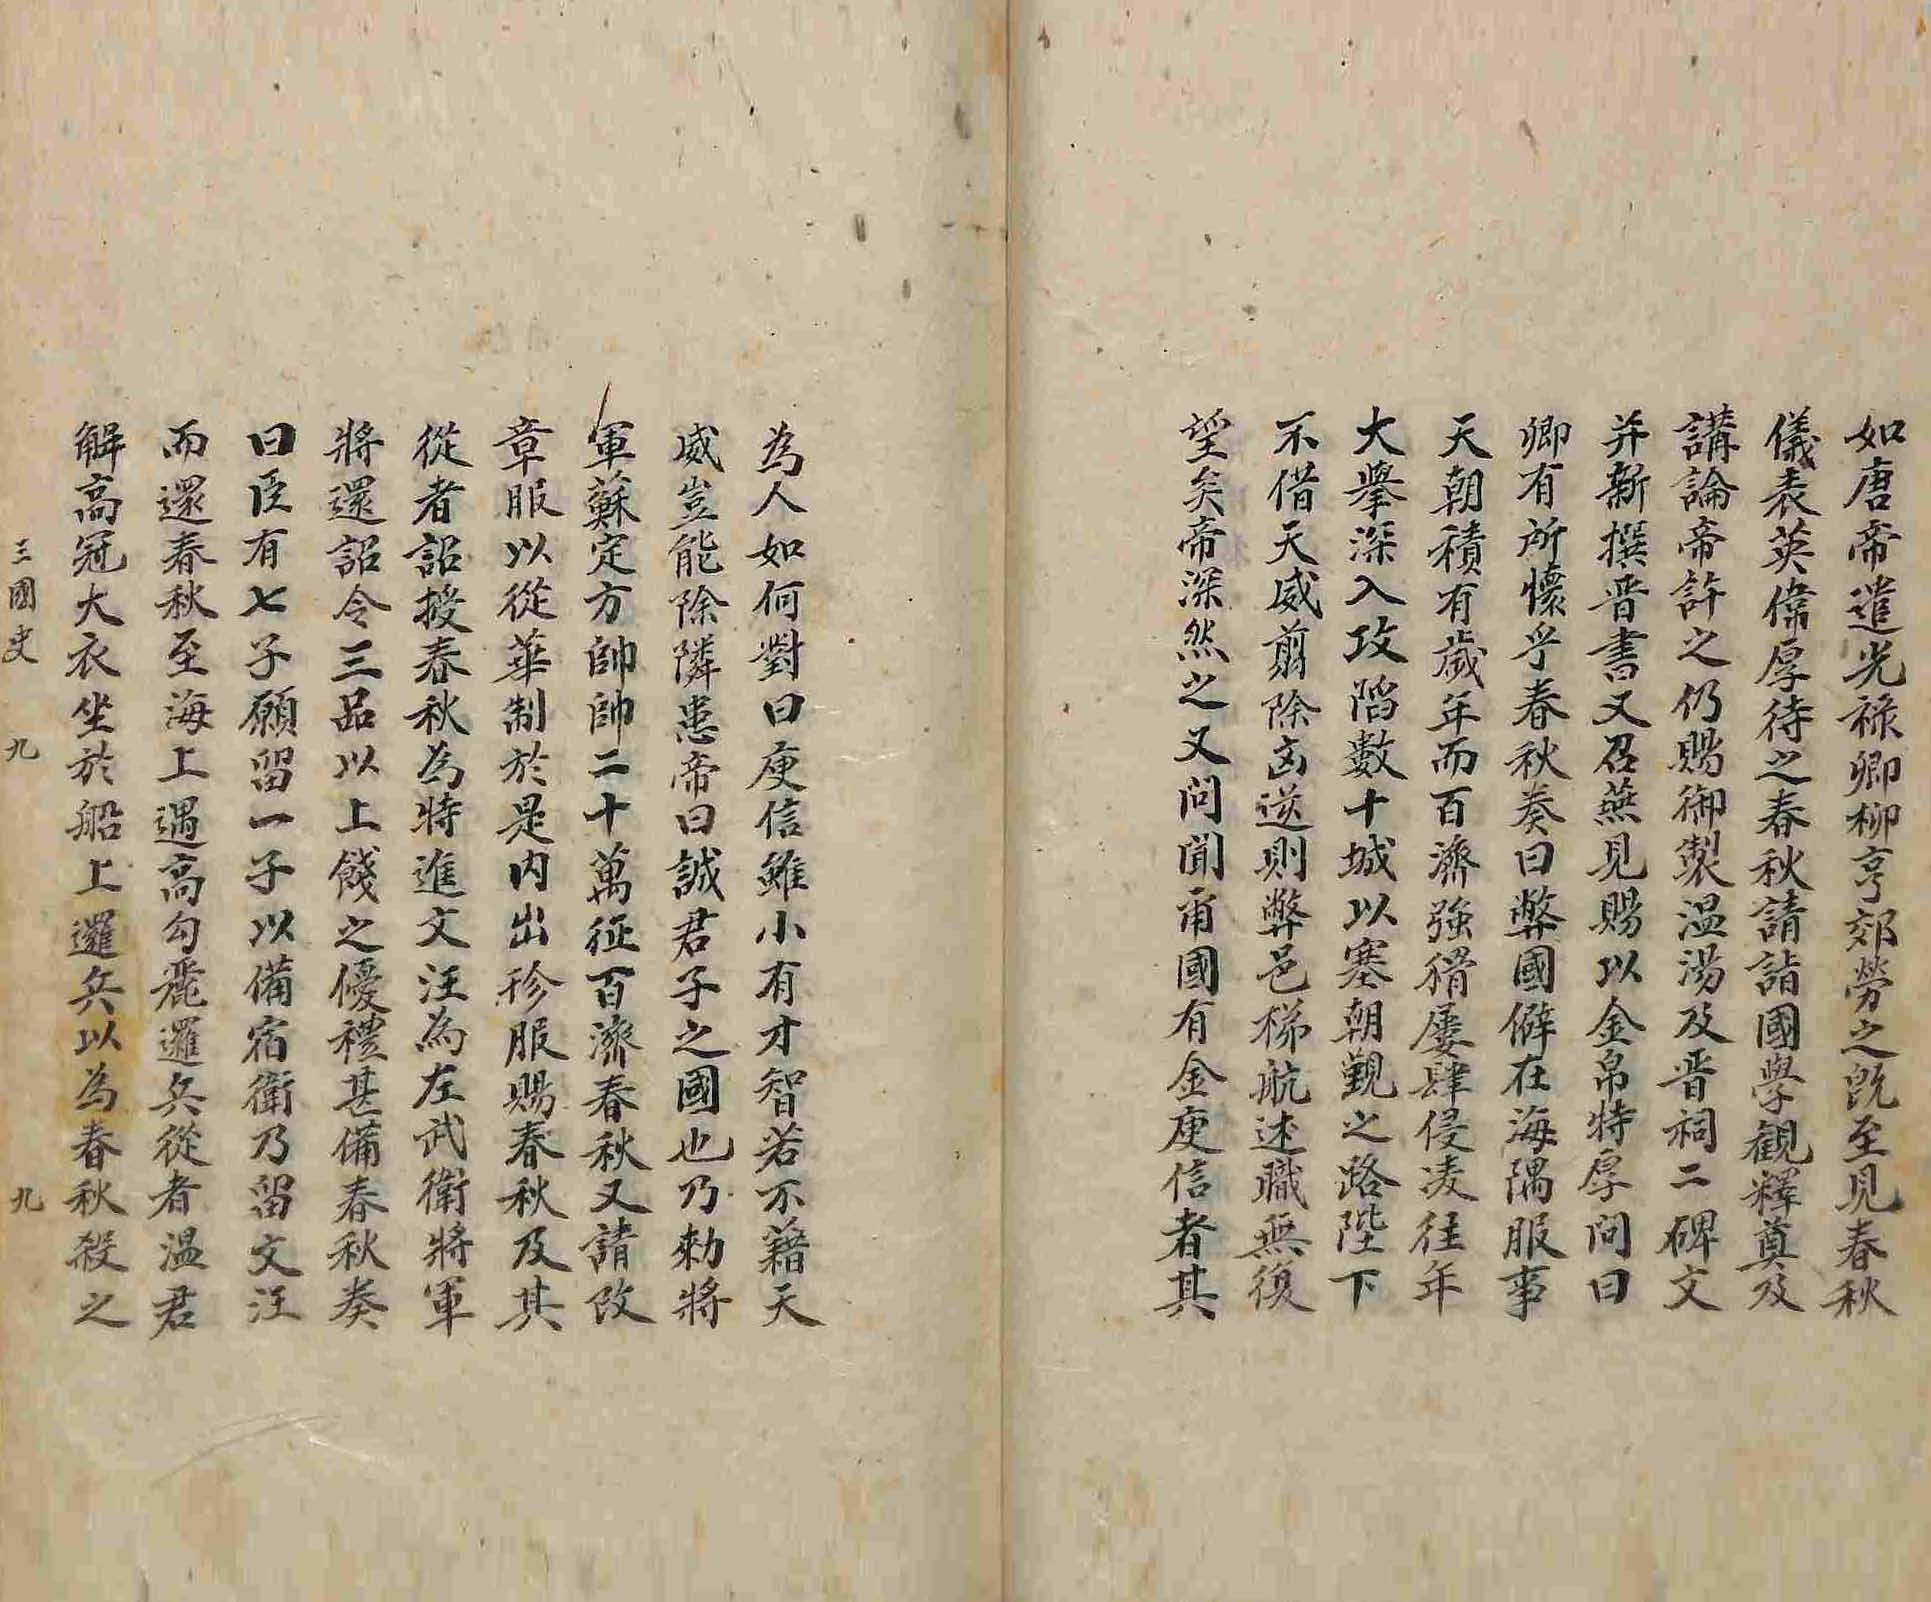 如唐帝遣光祿卿柳亨郊勞之旣至見春秋
儀表英偉厚待之春秋請詣國學觀釋奠及
講論帝許之仍賜御製温湯及晋祠二碑文
并新撰晋書又召燕見賜以金帛特厚問曰
卿有所懷乎春秋奏曰弊國僻在海隅服事
天朝積有歲年而百濟強猾屢肆侵凌徃年
大擧深入攻陷數十城以塞朝覲之路陛下
不借天威剪除凶逆則弊邑梯航述職無復
望矣帝深然之又問聞甭國有金庾信者其
為人如何對曰庾信雖小有才智若不籍天
威豈能除隣患帝曰誠君子之國也乃勑將
軍蘇定方帥帥二十萬征百濟春秋又請改
章服以從華制於是内出珍服賜春秋及其
從者詔授春秋為特進文汪為左武衛將軍
將還詔令三品以上餞之優禮甚備春秋奏
曰臣有七子願留一子以備宿衛乃留文汪
而還春秋至海上遇高勾麗邏兵從者温君
解高冠大衣坐於船上邏兵以為春秋殺之
三國史 九 九